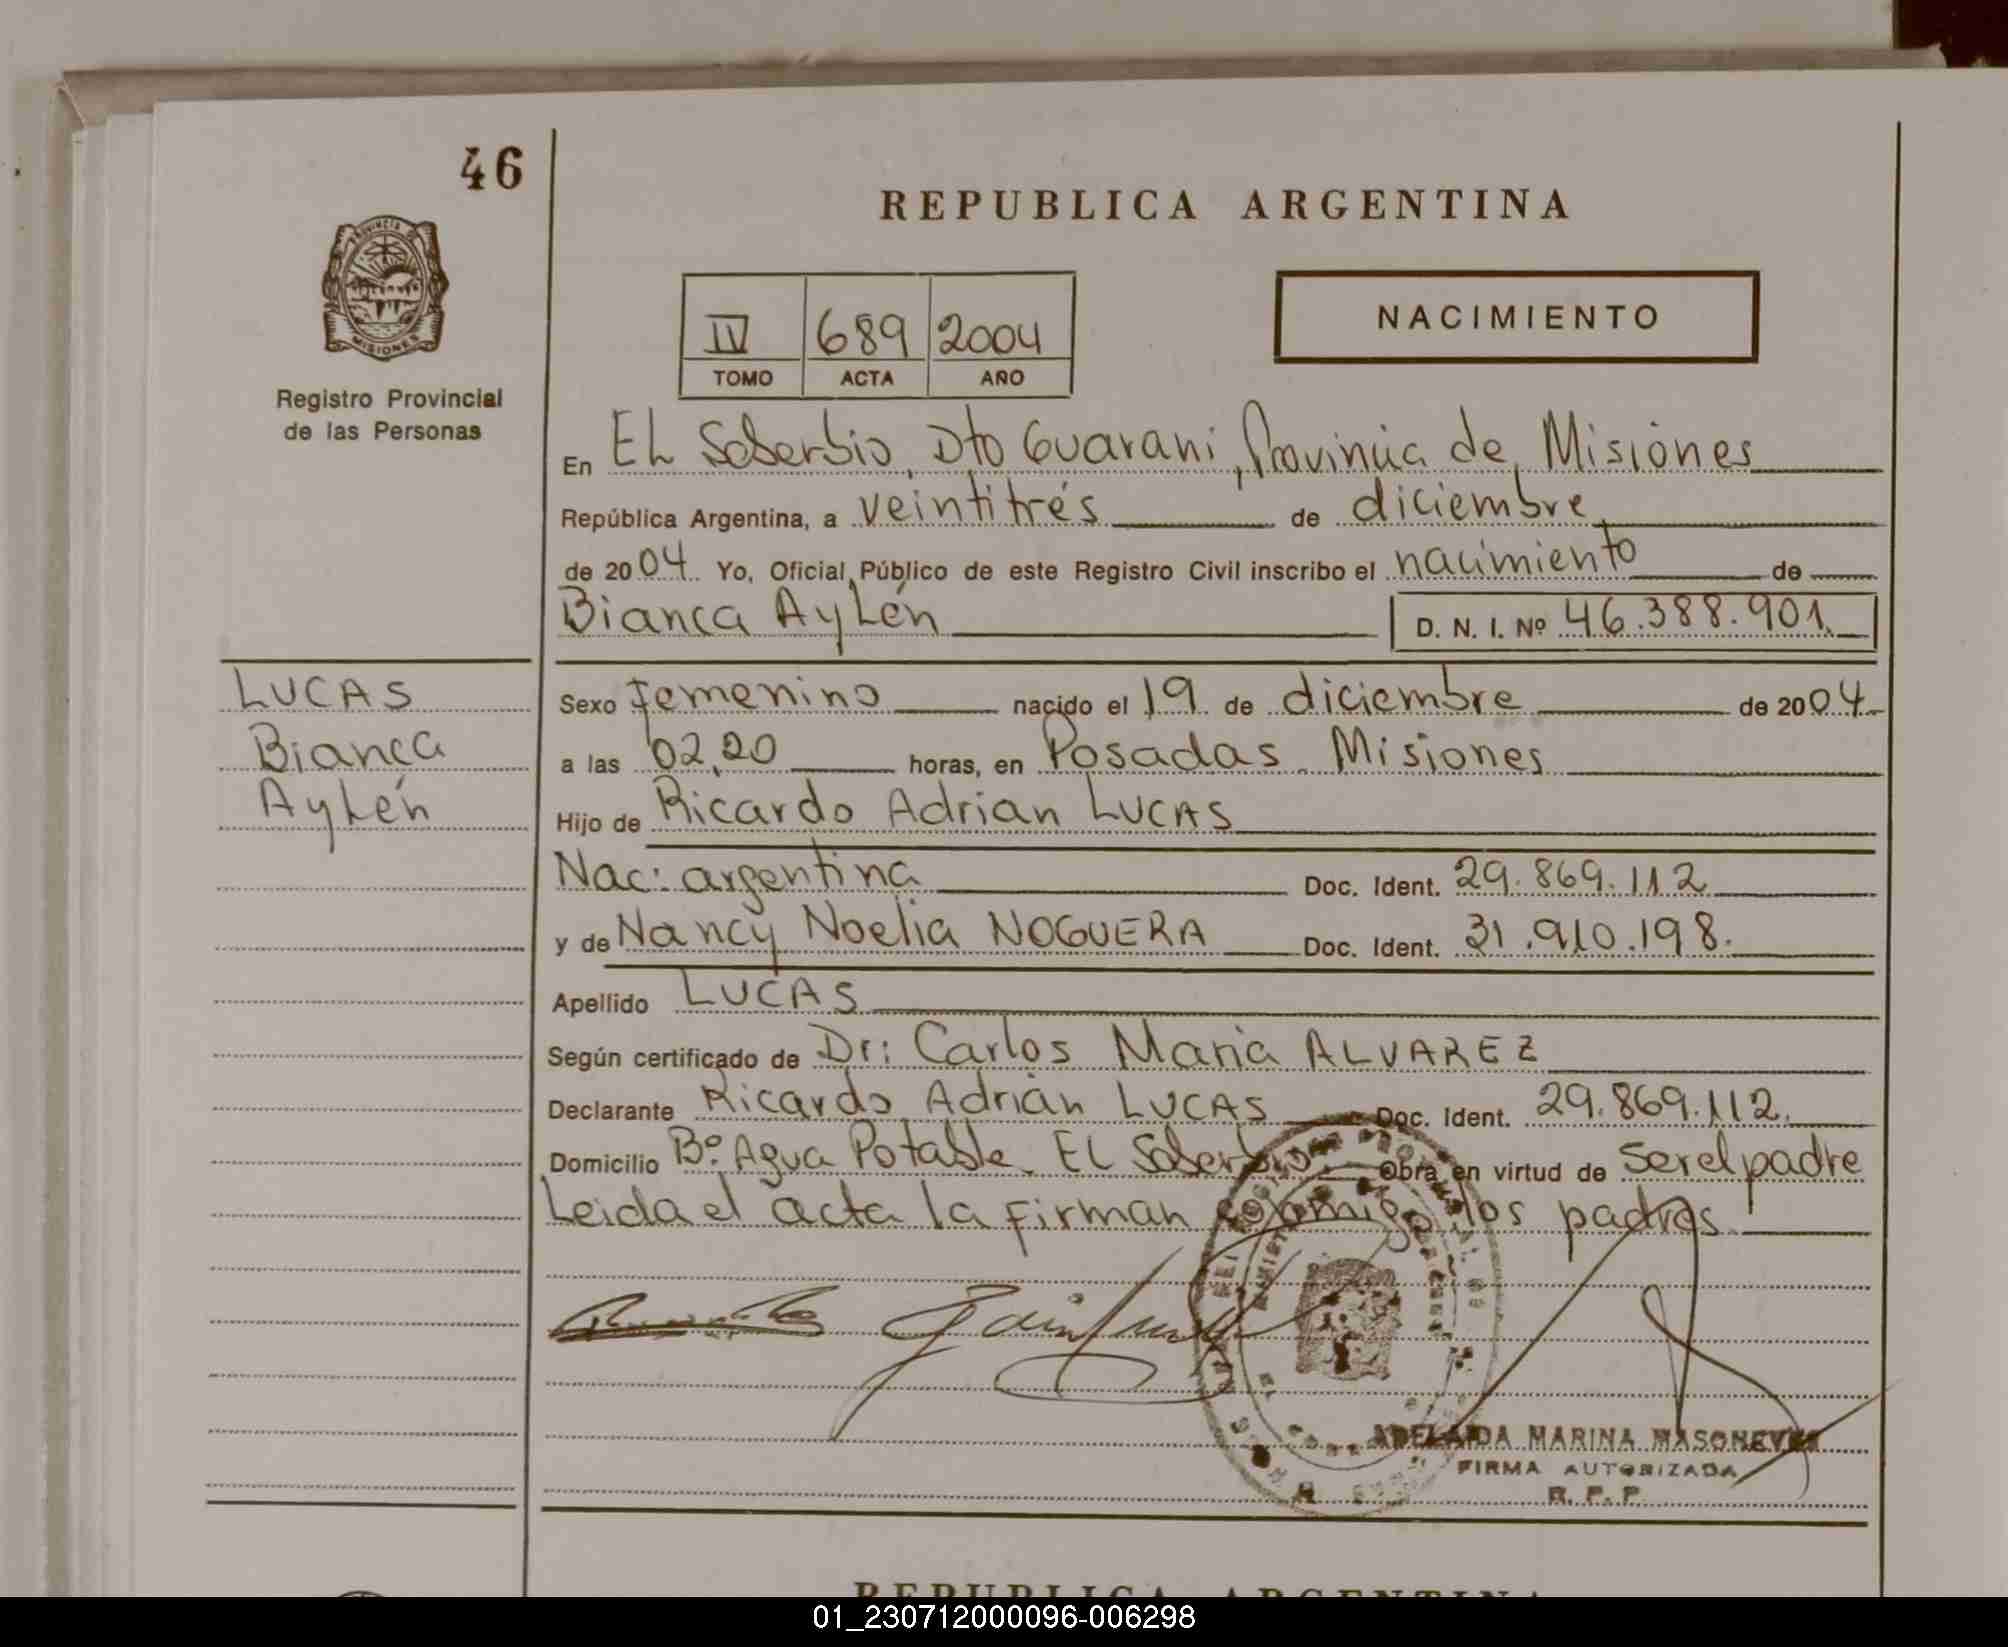 46
REPUBLICA ARGENTINA
PROVINCIA DE
MISIONES
Registro Provincial
de las Personas
IV 689 2004
TOMO ACTA AÑO
NACIMIENTO
En EL Soberbio, Dto Guarani, Provincia de Misiones
República Argentina, a veintitrés de diciembre
de 2004 Yo, Oficial Público de este Registro Civil inscribo el nacimiento de
Bianca Aylén D. N. I. Nº 46.388.901.
LUCAS
Bianca
Aylén
Sexo femenino nacido el 19 de diciembre de 2004
a las 02,20 horas, en Posadas. Misiones
Hijo de Ricardo Adrian LUCAS
Nac: argentina Doc. Ident. 29.869.112
y de Nancy Noelia NOGUERA Doc. Ident. 31.910.198.
Apellido LUCAS
Según certificado de Dr: Carlos Maria ALVAREZ
Declarante Ricardo Adrián LUCAS Doc. Ident. 29.869.112.
Domicilio Bº Agua Potable. EL Soberbio. Obra en virtud de ser el padre
Leida el acta la firman conmigo los padres
ADELAIDA MARINA
FIRMA AUTORIZADA
R. P. P.
REPUBLICA ARGENTINA
01_230712000096-006298